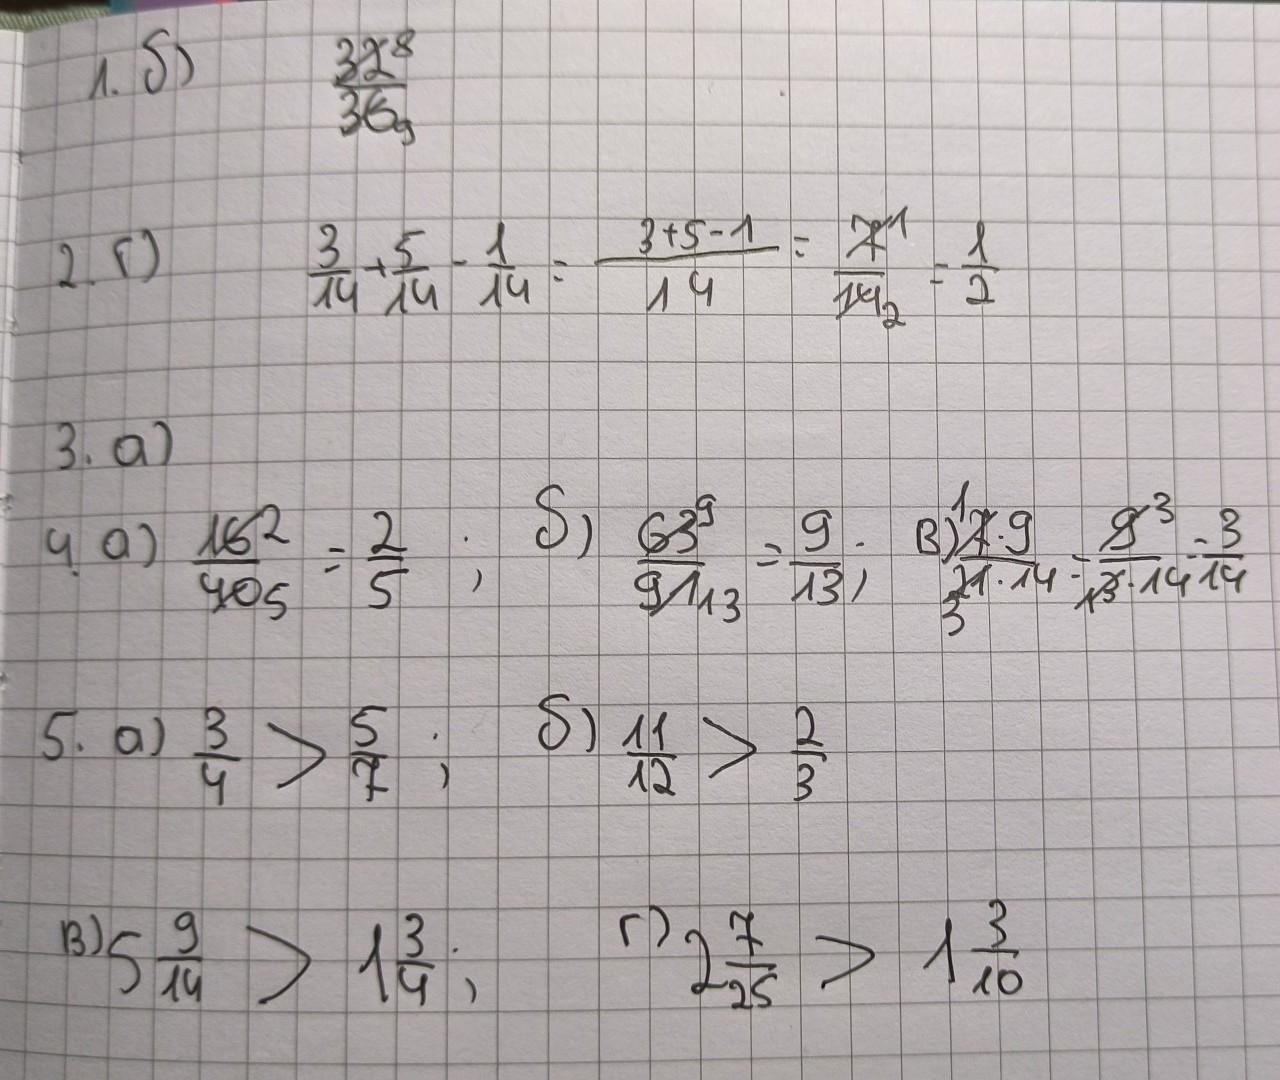 1. б) 32⁸/36₉
2. г) 3/14 + 5/14 - 1/14 = (3+5-1)/14 = 7¹/14₂ = 1/2
3. а)
4. а) 16²/40₅ = 2/5 ; б) 63⁹/91₁₃ = 9/13 ; в) ¹7·9/₃21·14 = 9³/₁3·14 = 3/14
5. а) 3/4 > 5/7 ; б) 11/12 > 2/3
в) 5 9/14 > 1 3/4 ; г) 2 7/25 > 1 3/10